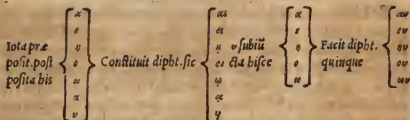 Iota præ
posit.post
posita his
α
ε
η
ο
ω
α
υ
Constituit dipht.sic
αι
ει
ῃ
οι
ῳ
ᾳ
υ subiū
cta hisce
α
ε
η
ο
ω
Facit dipht.
quinque
αυ
ευ
ηυ
ου
ωυ